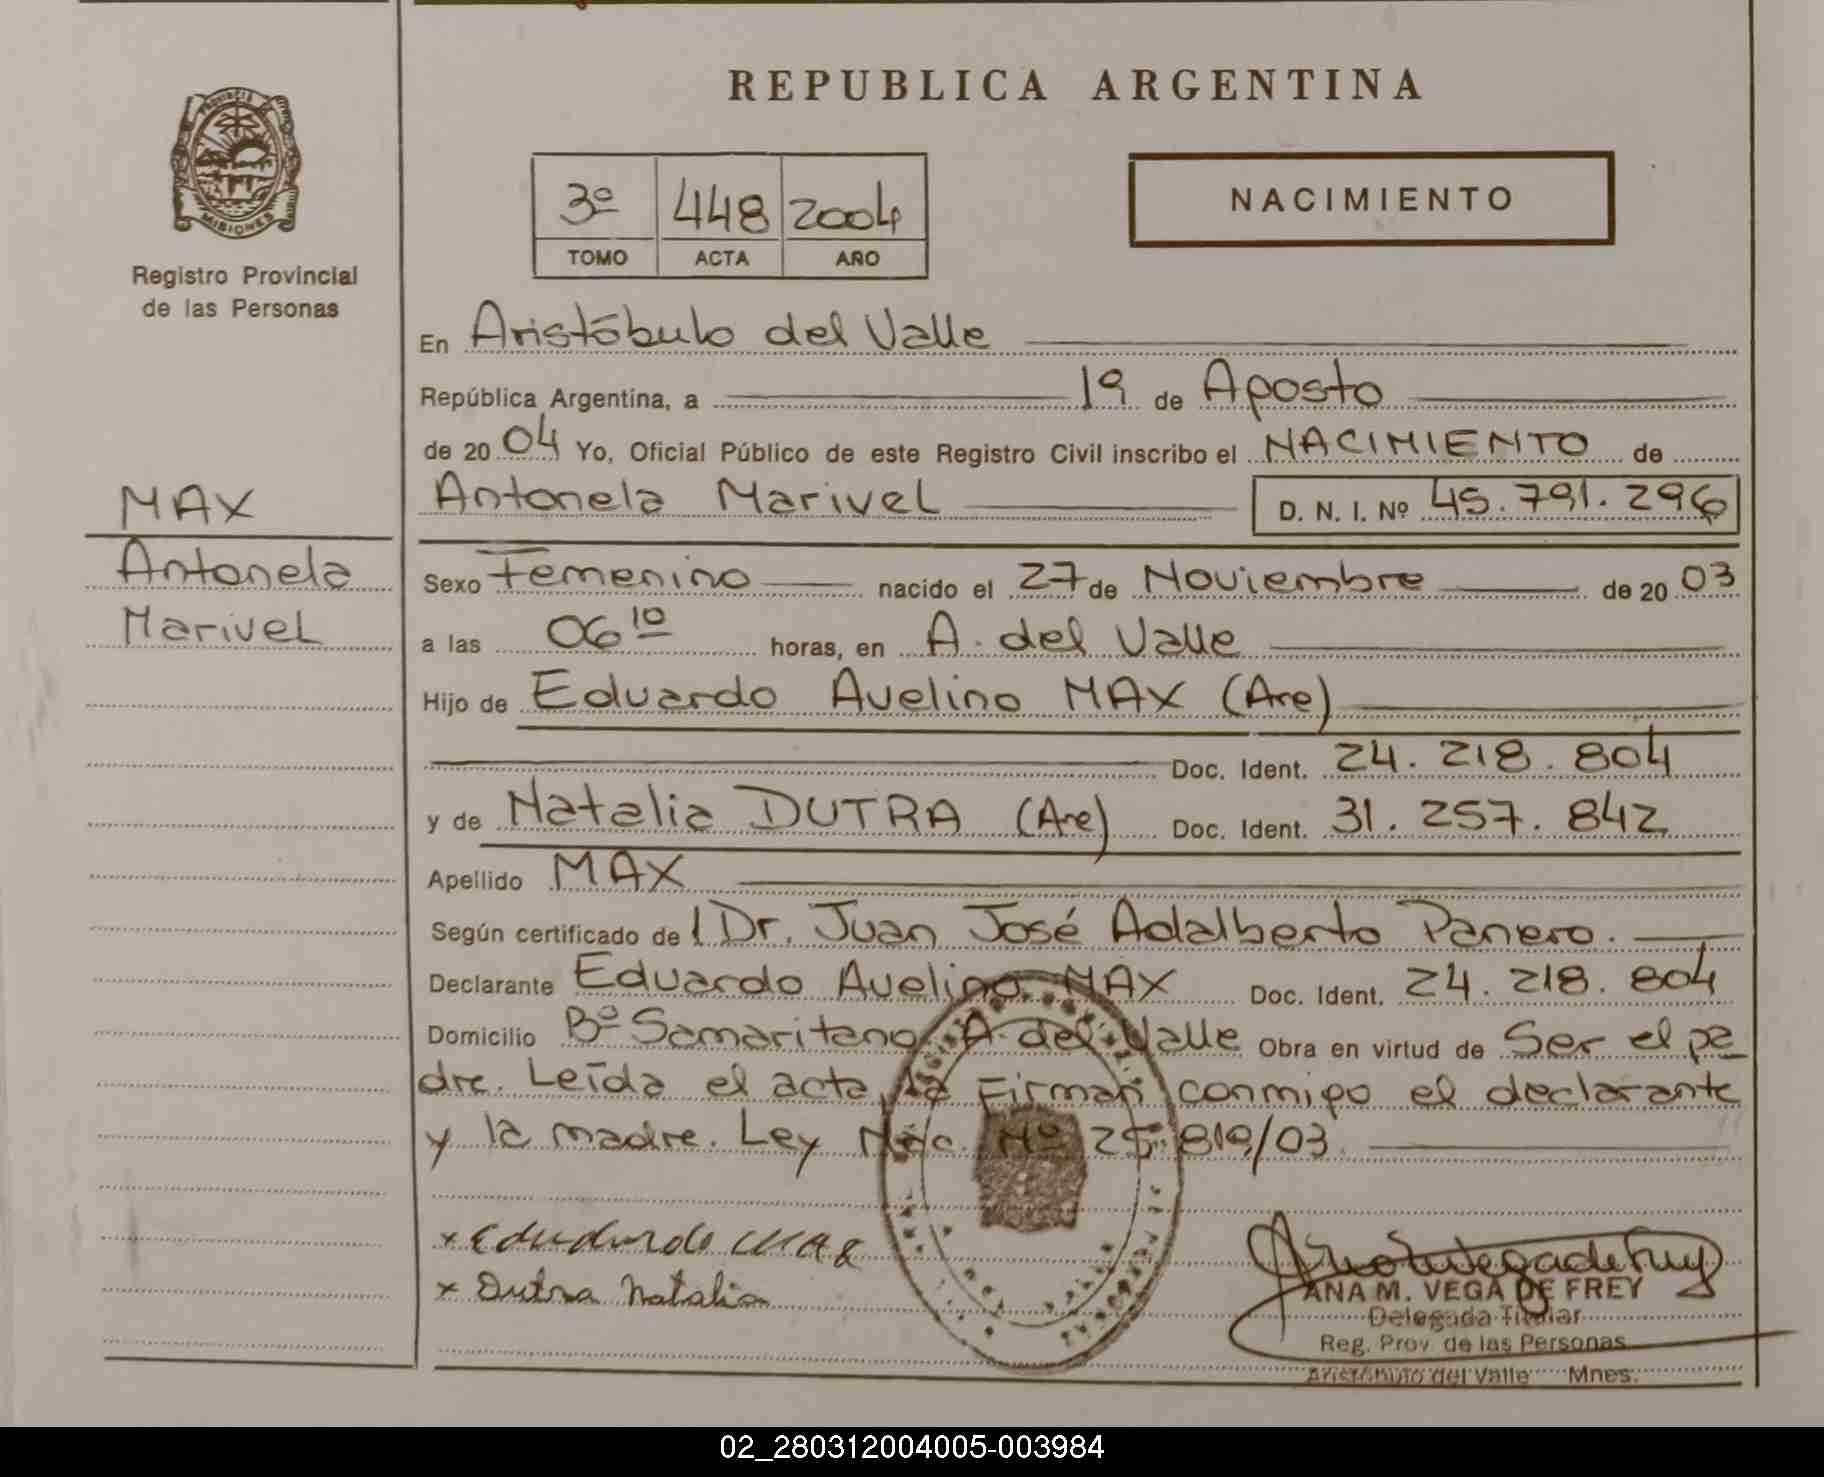 REPUBLICA ARGENTINA
PROVINCIA
MISIONES
Registro Provincial
de las Personas
3º 448 2004
TOMO ACTA AÑO
NACIMIENTO
En Aristóbulo del Valle
República Argentina, a 19 de Agosto
de 2004 Yo, Oficial Público de este Registro Civil inscribo el NACIMIENTO de
Antonela Marivel D. N. I. Nº 45.791.296
MAX
Antonela
Marivel
Sexo Femenino nacido el 27 de Noviembre de 2003
a las 06 10 horas, en A. del Valle
Hijo de Eduardo Avelino MAX (Are)
Doc. Ident. 24.218.804
y de Natalia DUTRA (Are) Doc. Ident. 31.257.842
Apellido MAX
Según certificado del Dr. Juan José Adalberto Panero.
Declarante Eduardo Avelino MAX Doc. Ident. 24.218.804
Domicilio Bº Samaritano A. del Valle Obra en virtud de Ser el pa
dre. Leída el acta, la Firman conmigo el declarante
y la madre. Ley Nac. Nº 25.819/03.
x Eduardo MAX
x Dutra Natalia
ANA M. VEGA DE FREY
Delegada Titular
Reg. Prov. de las Personas
Aristóbulo del Valle Mnes.
02_280312004005-003984